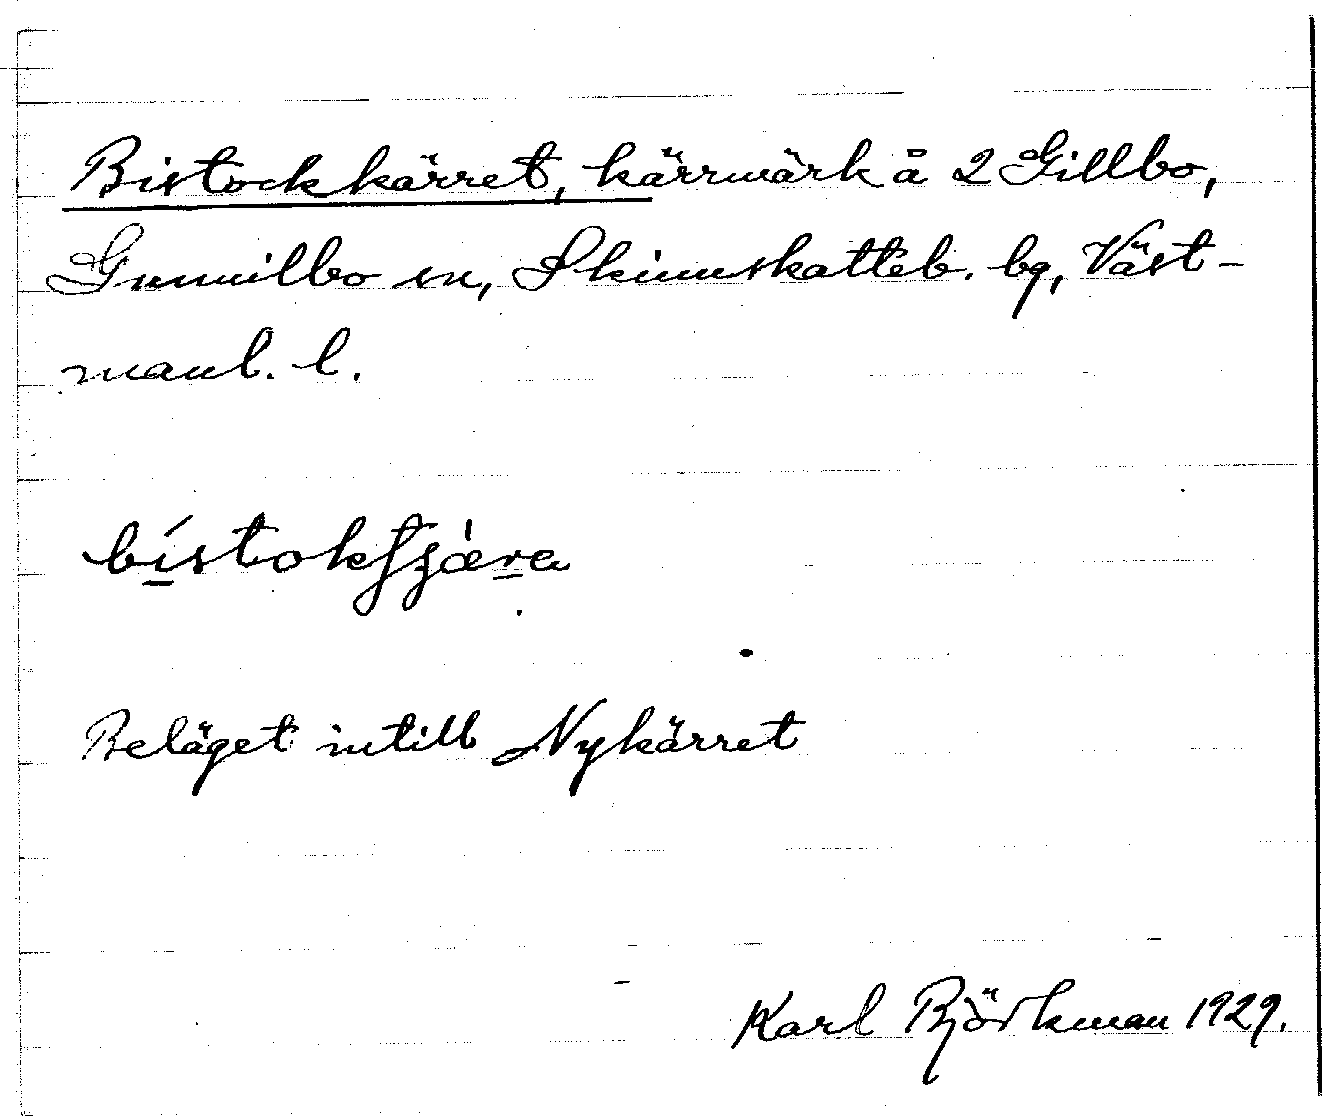 Bistockkärret, kärrmark å 2 Gillbo,
Gunnilbo sn, Skinnskatteb. bg, Väst-
manl. l.
Beläget intill Nykärret
Karl Björkman 1929.